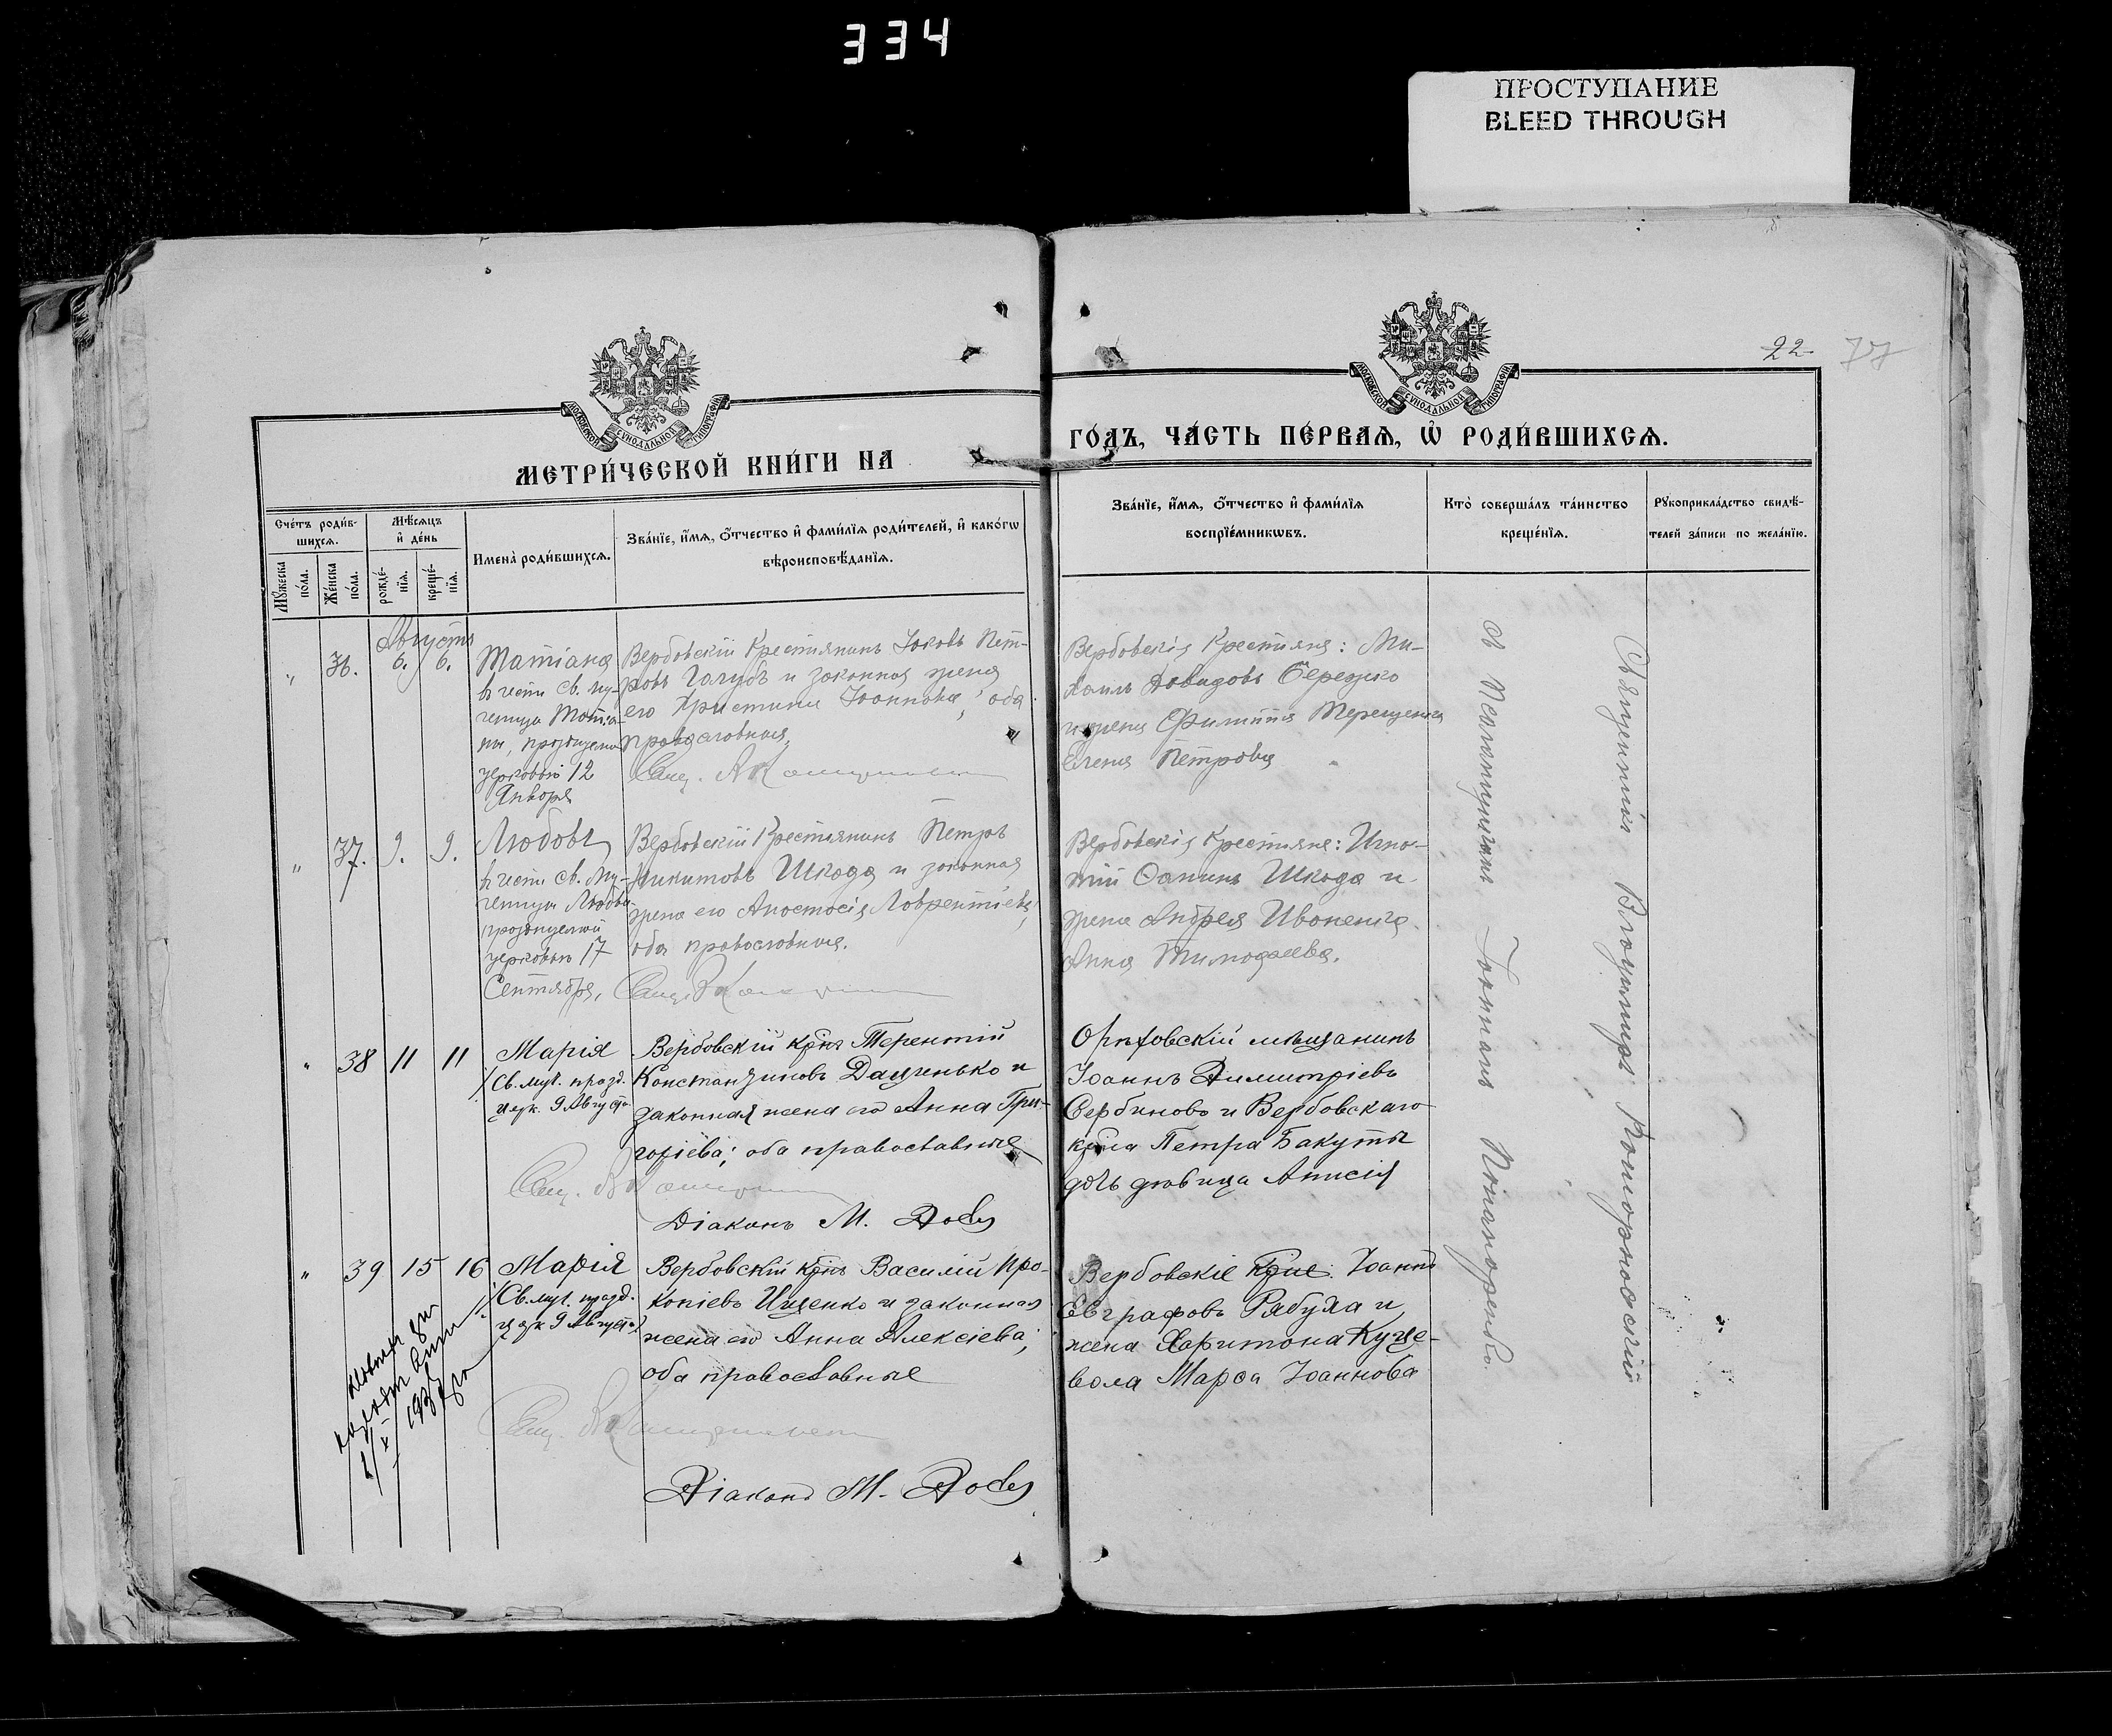 334
ПРОСТУПАНИЕ
BLEED THROUGH
22
77
МОСКОВСКОЙ СѴНОДАЛЬНОЙ ТИПОГРАФІИ
МОСКОВСКОЙ СѴНОДАЛЬНОЙ ТИПОГРАФІИ
МЕТРИ́ЧЕСКОЙ КНИ́ГИ НА
ГО́ДЪ, ЧА́СТЬ ПЕ́РВАѦ, Ѽ РОДИ́ВШИХСѦ.
Сче́тъ роди́в-
шихсѧ.
Мꙋ́жеска
по́ла.
Же́нска
по́ла.
Мѣ́сѧцъ
и҆ де́нь
рожде́-
нїѧ.
креще́-
нїѧ.
Имена̀ роди́вшихсѧ.
Зва́нїе, и҆́мѧ, ѻ҆́тчество и҆ фами́лїѧ роди́телей, и҆ како́гѡ
вѣроисповѣ́данїѧ.
Зва́нїе, и҆́мѧ, ѻ҆́тчество и҆ фами́лїѧ
воспрїе́мникѡвъ.
Кто̀ соверша́лъ та́инство
креще́нїѧ.
Рꙋкоприкла́дство свидѣ́-
телей за́писи по жела́нїю.
Августъ
" 36. 6. 6.
Татіана
въ честь св. му-
ченицы Татіа-
ны, празднуемой
церковью 12
Января
Вербовскій Крестьянинъ Іаковъ Пет-
ровъ Голубъ и законная жена
его Христина Іоаннова, оба
православныя.
Свящ.
Вербовскія Крестьяне: Ми-
хаилъ Давидовъ Бережко
и жена Филиппа Терещенка
Елена Петрова
" 37. 9. 9.
Любовь
въ честь св. Му-
ченицы Любви
празднуемой
церковью 17
Сентября,
Вербовскій Крестьянинъ Петръ
Никитовъ Шкода и законная
жена его Анастасія Лаврентіева,
оба православныя.
Свящ.
Вербовскія Крестьяне: Игна-
тій Шкода и
жена Андрея Ивоненка
Анна Тимофеева.
" 38 11 11
Марія
/Св. муч. празд.
церк. 9 Августа
Вербовскій крнъ Терентій
Константиновъ Даценько и
законная жена его Анна Гри-
горіева; оба православные
Свящ.
Діаконъ М.
Орѣховскій мѣщанинъ
Іоаннъ Димитріевъ
Сербиновъ и Вербовскаго
крна Петра Бакуты
дочь дѣвица Анисія
" 39 15 16
Марія
/Св. муч. празд.
церк 9 Августа/
Вербовскій крнъ Василій Про-
копіевъ Ищенко и законная
жена его Анна Алексіева;
оба православные
Свящ.
Діаконъ М.
Вербовскіе крне. Іоаннъ
Евграфовъ Рябуха и
жена Харитона Куце-
вола Марфа Іоаннова
Священникъ Владиміръ
съ Псаломщикомъ Іоанномъ